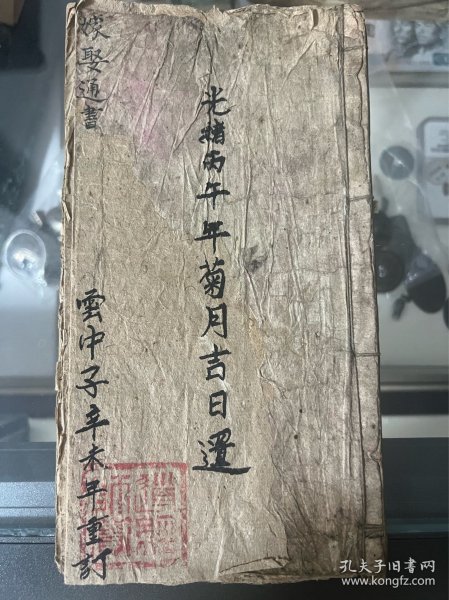 光緒丙午年菊月吉日選
嫁娶通書
雲中子辛未年重訂
孔夫子旧书网
www.kongfz.com